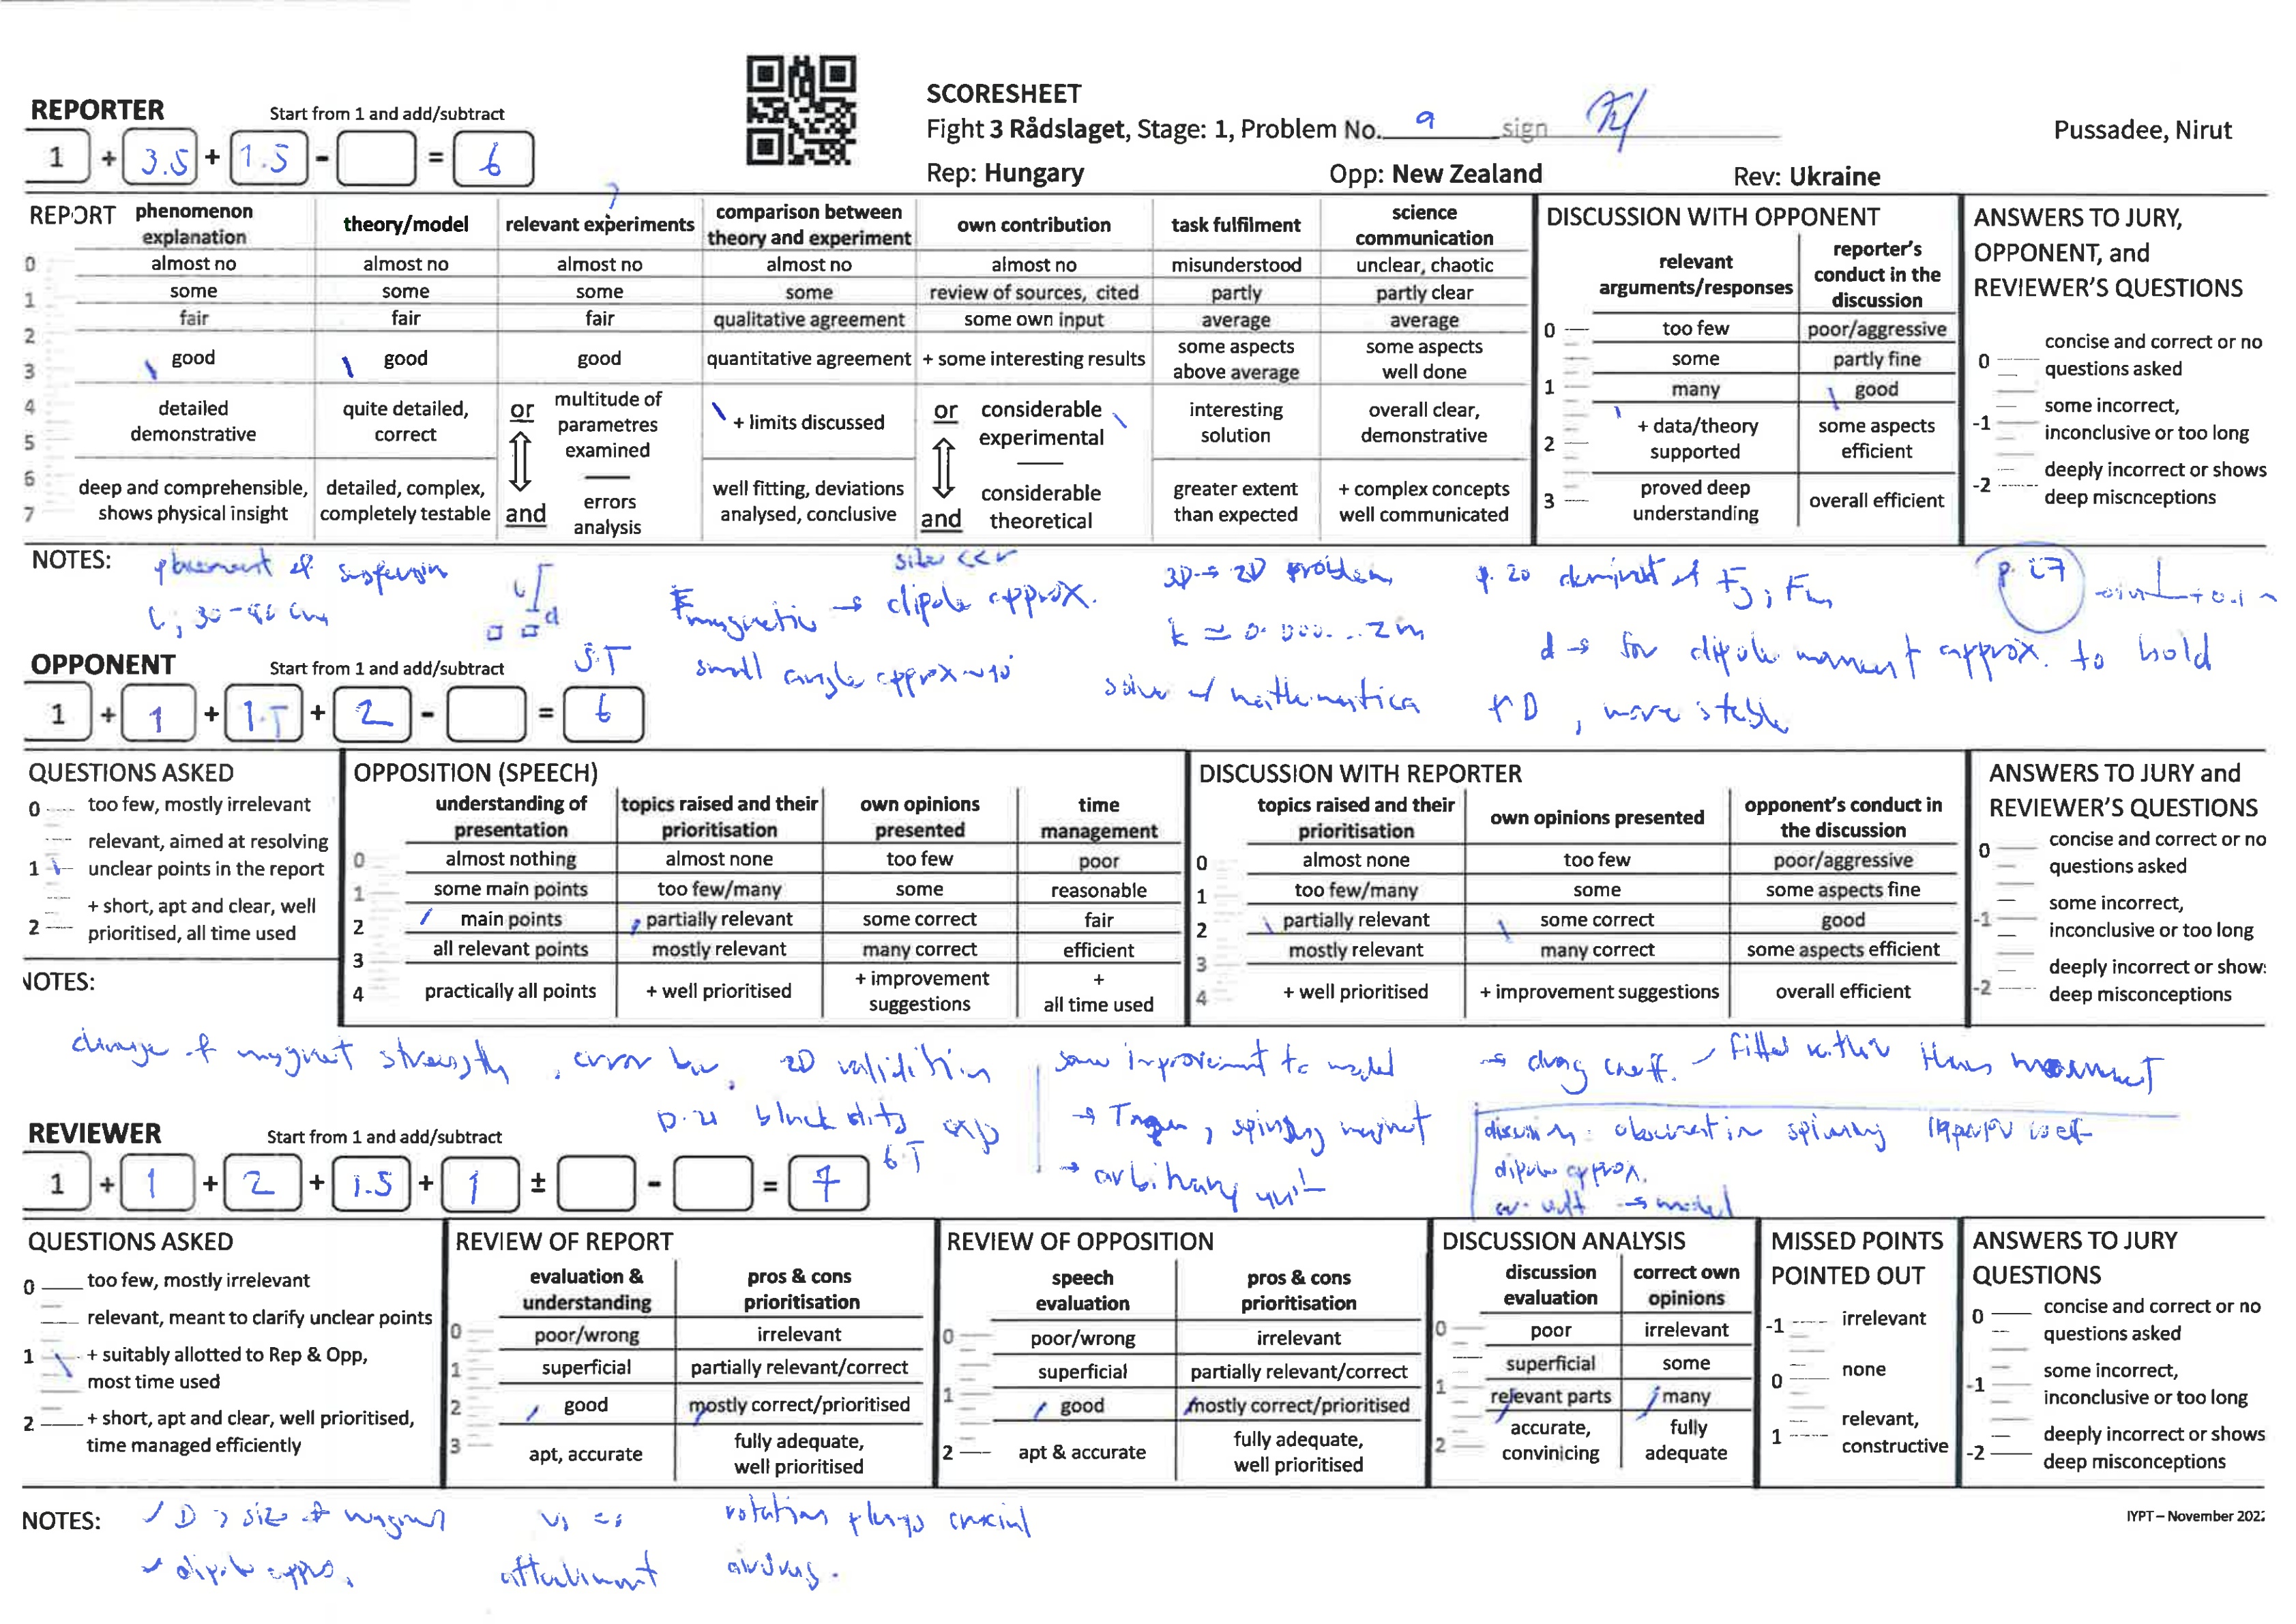 SCORESHEET
REPORTER Start from 1 and add/subtract
1 + 3.5 + 1.5 - = 6
Fight 3 Rådslaget, Stage: 1, Problem No. 9 sign
Pussadee, Nirut
Rep: Hungary Opp: New Zealand Rev: Ukraine
REPORT
phenomenon explanation
almost no
some
fair
good
detailed demonstrative
deep and comprehensible, shows physical insight
theory/model
almost no
some
fair
good
quite detailed, correct
detailed, complex, completely testable
relevant experiments
almost no
some
fair
good
or
and
multitude of parametres examined
errors analysis
comparison between theory and experiment
almost no
some
qualitative agreement
quantitative agreement
+ limits discussed
well fitting, deviations analysed, conclusive
own contribution
almost no
review of sources, cited
some own input
+ some interesting results
or
and
considerable experimental
considerable theoretical
task fulfilment
misunderstood
partly
average
some aspects above average
interesting solution
greater extent than expected
science communication
unclear, chaotic
partly clear
average
some aspects well done
overall clear, demonstrative
+ complex concepts well communicated
0
1
2
3
4
5
6
7
DISCUSSION WITH OPPONENT
relevant arguments/responses
too few
some
many
+ data/theory supported
proved deep understanding
reporter's conduct in the discussion
poor/aggressive
partly fine
good
some aspects efficient
overall efficient
0
1
2
3
ANSWERS TO JURY, OPPONENT, and REVIEWER'S QUESTIONS
0 concise and correct or no questions asked
-1 some incorrect, inconclusive or too long
-2 deeply incorrect or shows deep miscnceptions
NOTES:
placement of suspension
L, 30-90 cm
d
magnetic → dipole approx.
small angle approx ~10°
3D → 2D problem
solve w/ mathematica
p. 20
p. 27
d → for dipole moment approx. to hold
↑D, more stable
OPPONENT Start from 1 and add/subtract
5.5
1 + 1 + 1.5 + 2 - = 6
QUESTIONS ASKED
0 too few, mostly irrelevant
1 relevant, aimed at resolving unclear points in the report
2 + short, apt and clear, well prioritised, all time used
OPPOSITION (SPEECH)
understanding of presentation
almost nothing
some main points
main points
all relevant points
practically all points
topics raised and their prioritisation
almost none
too few/many
partially relevant
mostly relevant
+ well prioritised
own opinions presented
too few
some
some correct
many correct
+ improvement suggestions
time management
poor
reasonable
fair
efficient
+ all time used
0
1
2
3
4
DISCUSSION WITH REPORTER
topics raised and their prioritisation
almost none
too few/many
partially relevant
mostly relevant
+ well prioritised
own opinions presented
too few
some
some correct
many correct
+ improvement suggestions
opponent's conduct in the discussion
poor/aggressive
some aspects fine
good
some aspects efficient
overall efficient
0
1
2
3
4
ANSWERS TO JURY and REVIEWER'S QUESTIONS
0 concise and correct or no questions asked
-1 some incorrect, inconclusive or too long
-2 deeply incorrect or show: deep misconceptions
NOTES:
change of magnet strength, error bar, 2D
some improvement to model
→ drag coeff.
spinning magnet
→ arbitrary unit
dipole approx.
→ model
REVIEWER Start from 1 and add/subtract
1 + 1 + 2 + 1.5 + 1 ± - = 7
QUESTIONS ASKED
0 too few, mostly irrelevant
relevant, meant to clarify unclear points
1 + suitably allotted to Rep & Opp, most time used
2 + short, apt and clear, well prioritised, time managed efficiently
REVIEW OF REPORT
evaluation & understanding
poor/wrong
superficial
good
apt, accurate
pros & cons prioritisation
irrelevant
partially relevant/correct
mostly correct/prioritised
fully adequate, well prioritised
0
1
2
3
REVIEW OF OPPOSITION
speech evaluation
poor/wrong
superficial
good
apt & accurate
pros & cons prioritisation
irrelevant
partially relevant/correct
mostly correct/prioritised
fully adequate, well prioritised
0
1
2
DISCUSSION ANALYSIS
discussion evaluation
poor
superficial
relevant parts
accurate, convinicing
correct own opinions
irrelevant
some
many
fully adequate
0
1
2
MISSED POINTS POINTED OUT
-1 irrelevant
0 none
1 relevant, constructive
ANSWERS TO JURY QUESTIONS
0 concise and correct or no questions asked
-1 some incorrect, inconclusive or too long
-2 deeply incorrect or shows deep misconceptions
NOTES:
size of magnet
rotation plays crucial
dipole approx.
attachment
IYPT – November 2022